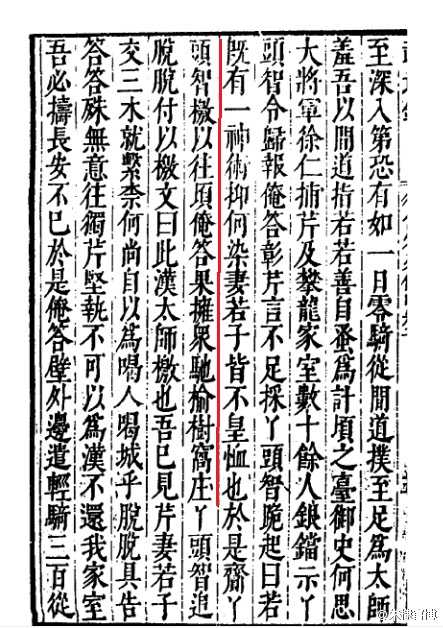 至深入第恐有如一日零騎從間道撲至足為太師
羞吾以間道指若若善自蚤為計頃之臺御史何思
大將軍徐仁捕芹及攀龍家室數十餘人鋃鐺示丫
頭智令歸報俺答彰芹言不足採丫頭智跪起曰若
既有一神術抑何染妻若子皆不皇恤也於是齎丫
頭智檄以往頃俺答果擁眾馳榆樹窩庄丫頭智迨
脫脫付以檄文曰此漢太師檄也吾已見芹妻若子
交三木就繫柰何尚自以為喝人喝城乎脫脫具告
答答殊無意往獨芹堅執不可以為漢不還我家室
吾必擣長安不已於是俺答壁外邊遣輕騎三百從